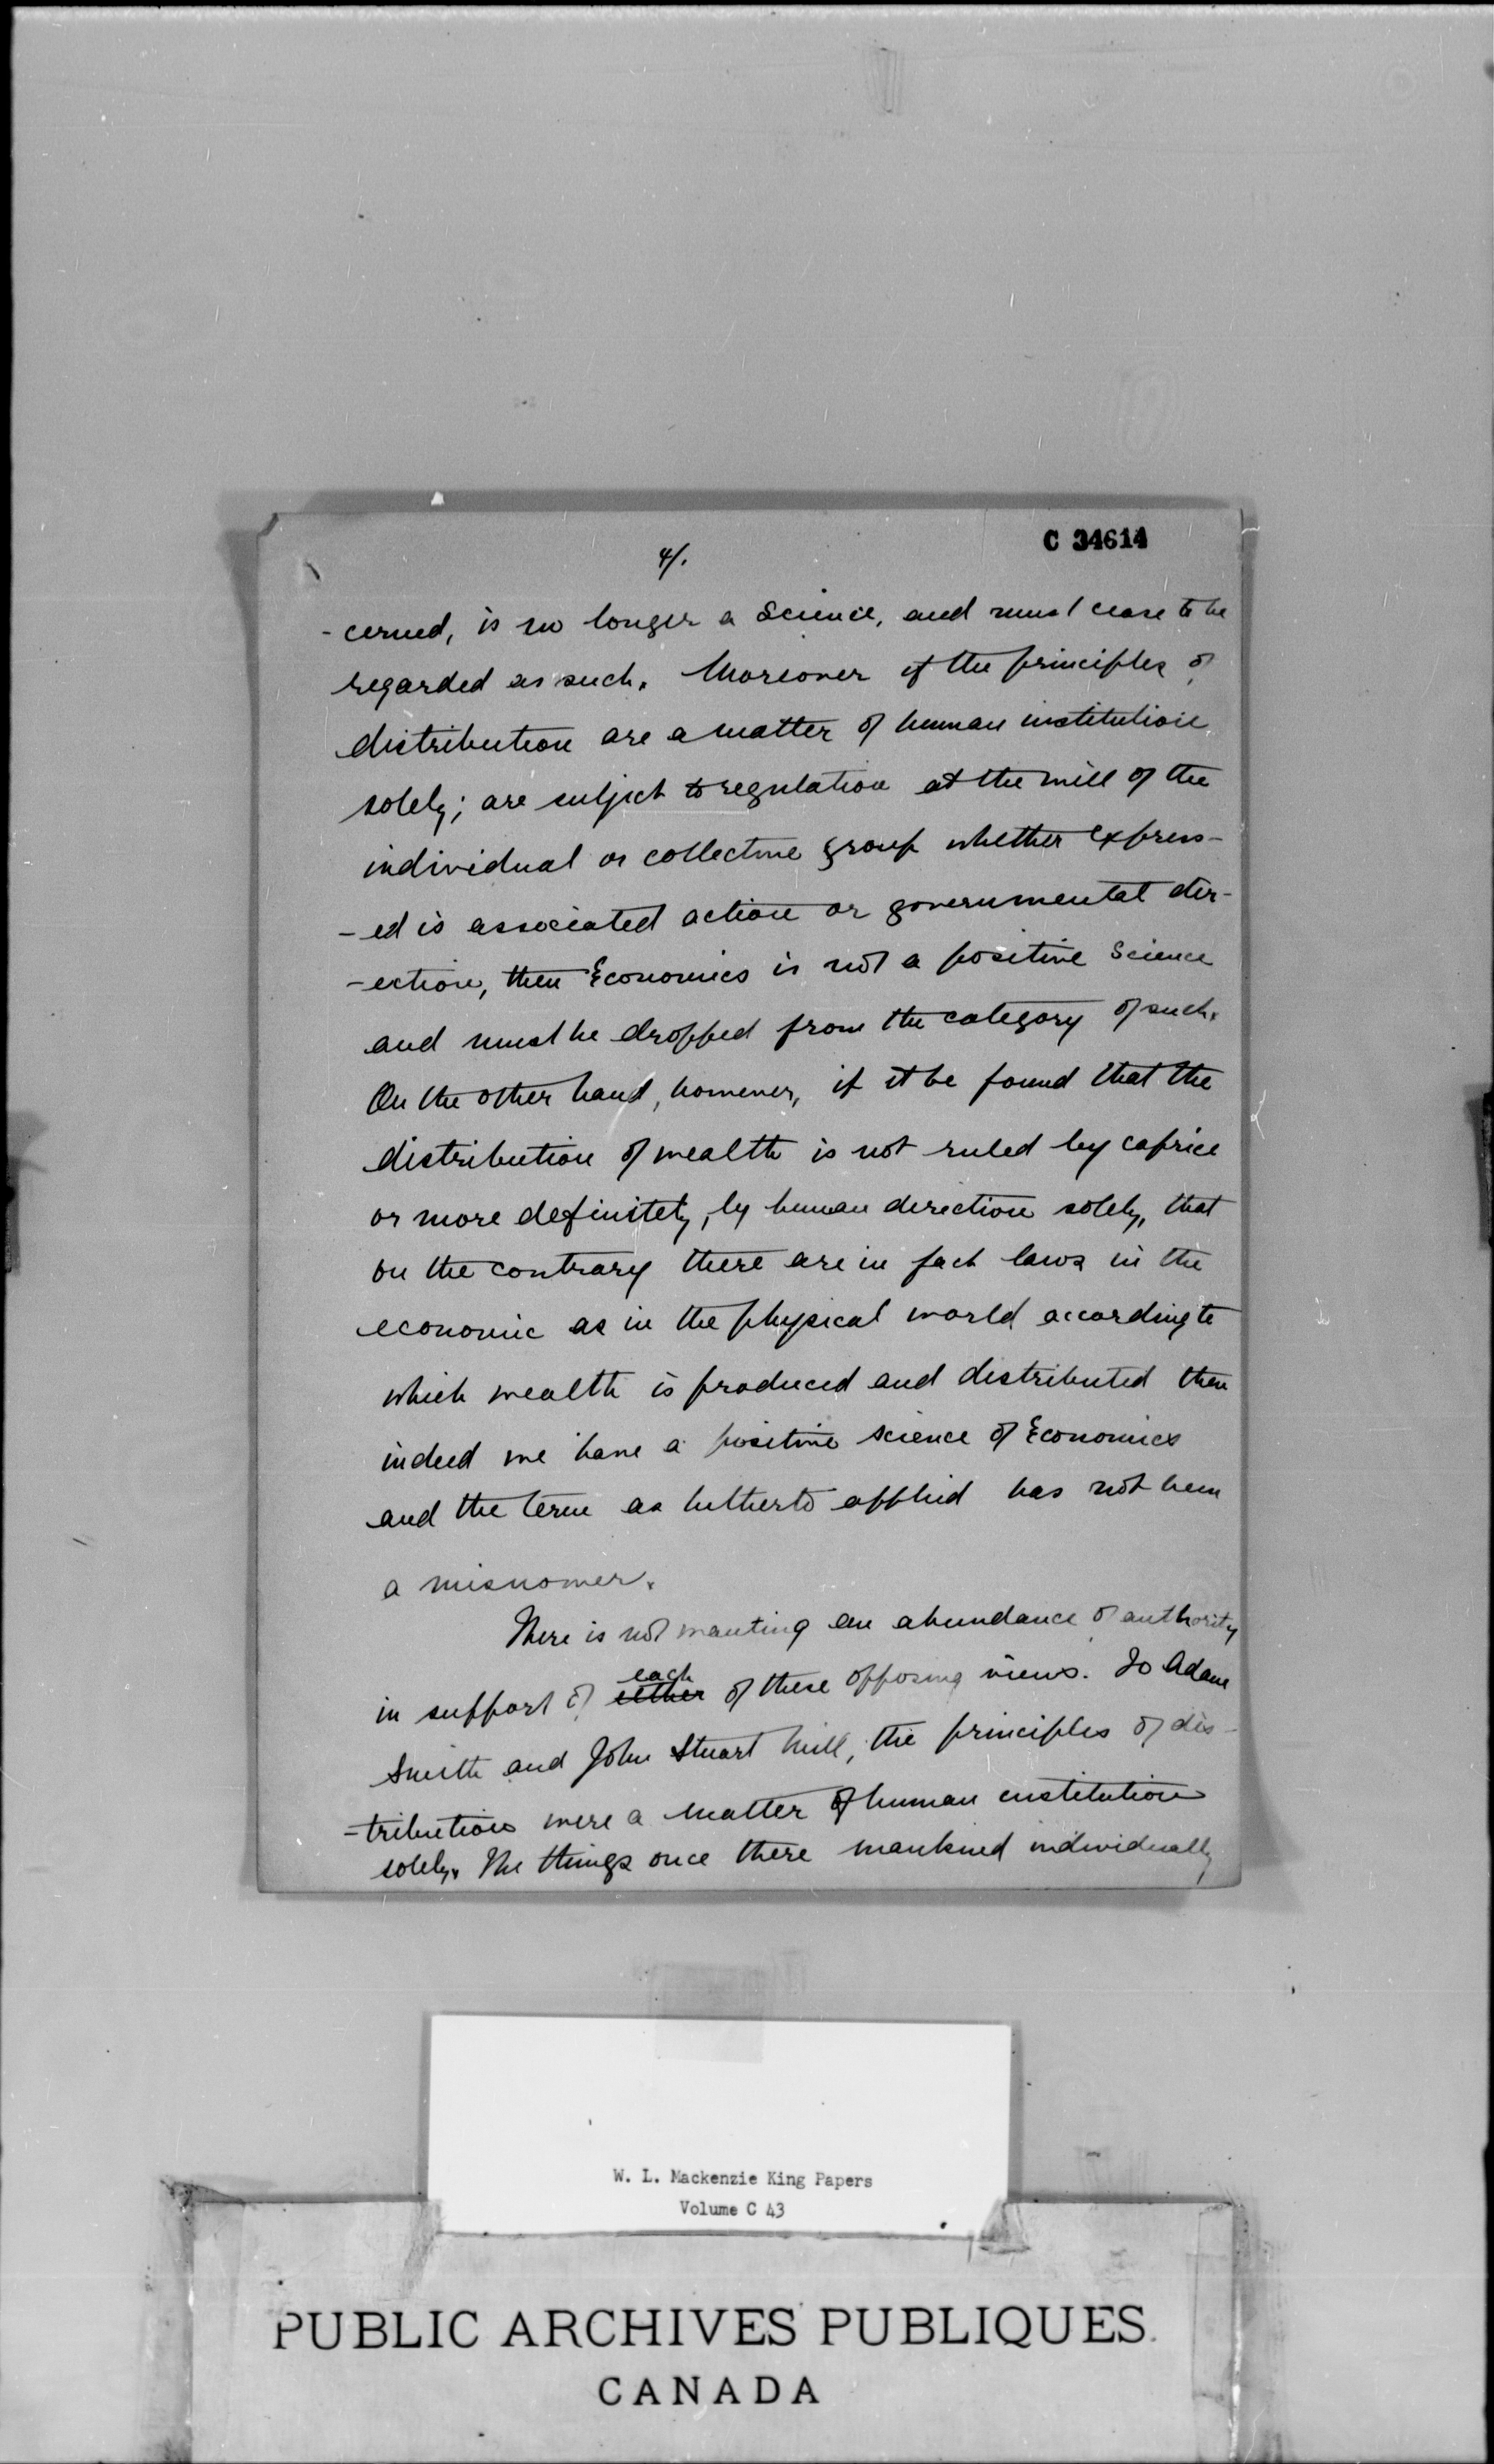 4/.
C 34614
-cerned, is no longer a Science, and must cease to be
regarded as such. Moreover if the principles of
distribution are a matter of human institution
solely; are subject to regulation at the will of the
individual or collective group whether express-
-ed is associated action or governmental dir-
-ection, then Economics is not a positive Science
and must be dropped from the category of such.
On the other hand, however, if it be found that the
distribution of wealth is not ruled by caprice
or more definitely, by human direction solely, that
on the contrary there are in fact laws in the
economic as in the physical world according to
which wealth is produced and distributed then
indeed we have a positive science of Economics
and the term as hitherto applied has not been
a misnomer.
There is not wanting an abundance of authority
each
in support of either of these opposing views. To Adam
Smith and John Stuart Mill, the principles of dis-
-tribution were a matter of human institution
solely. The things once there mankind individually
W. L. Mackenzie King Papers
Volume C 43
PUBLIC ARCHIVES PUBLIQUES
CANADA